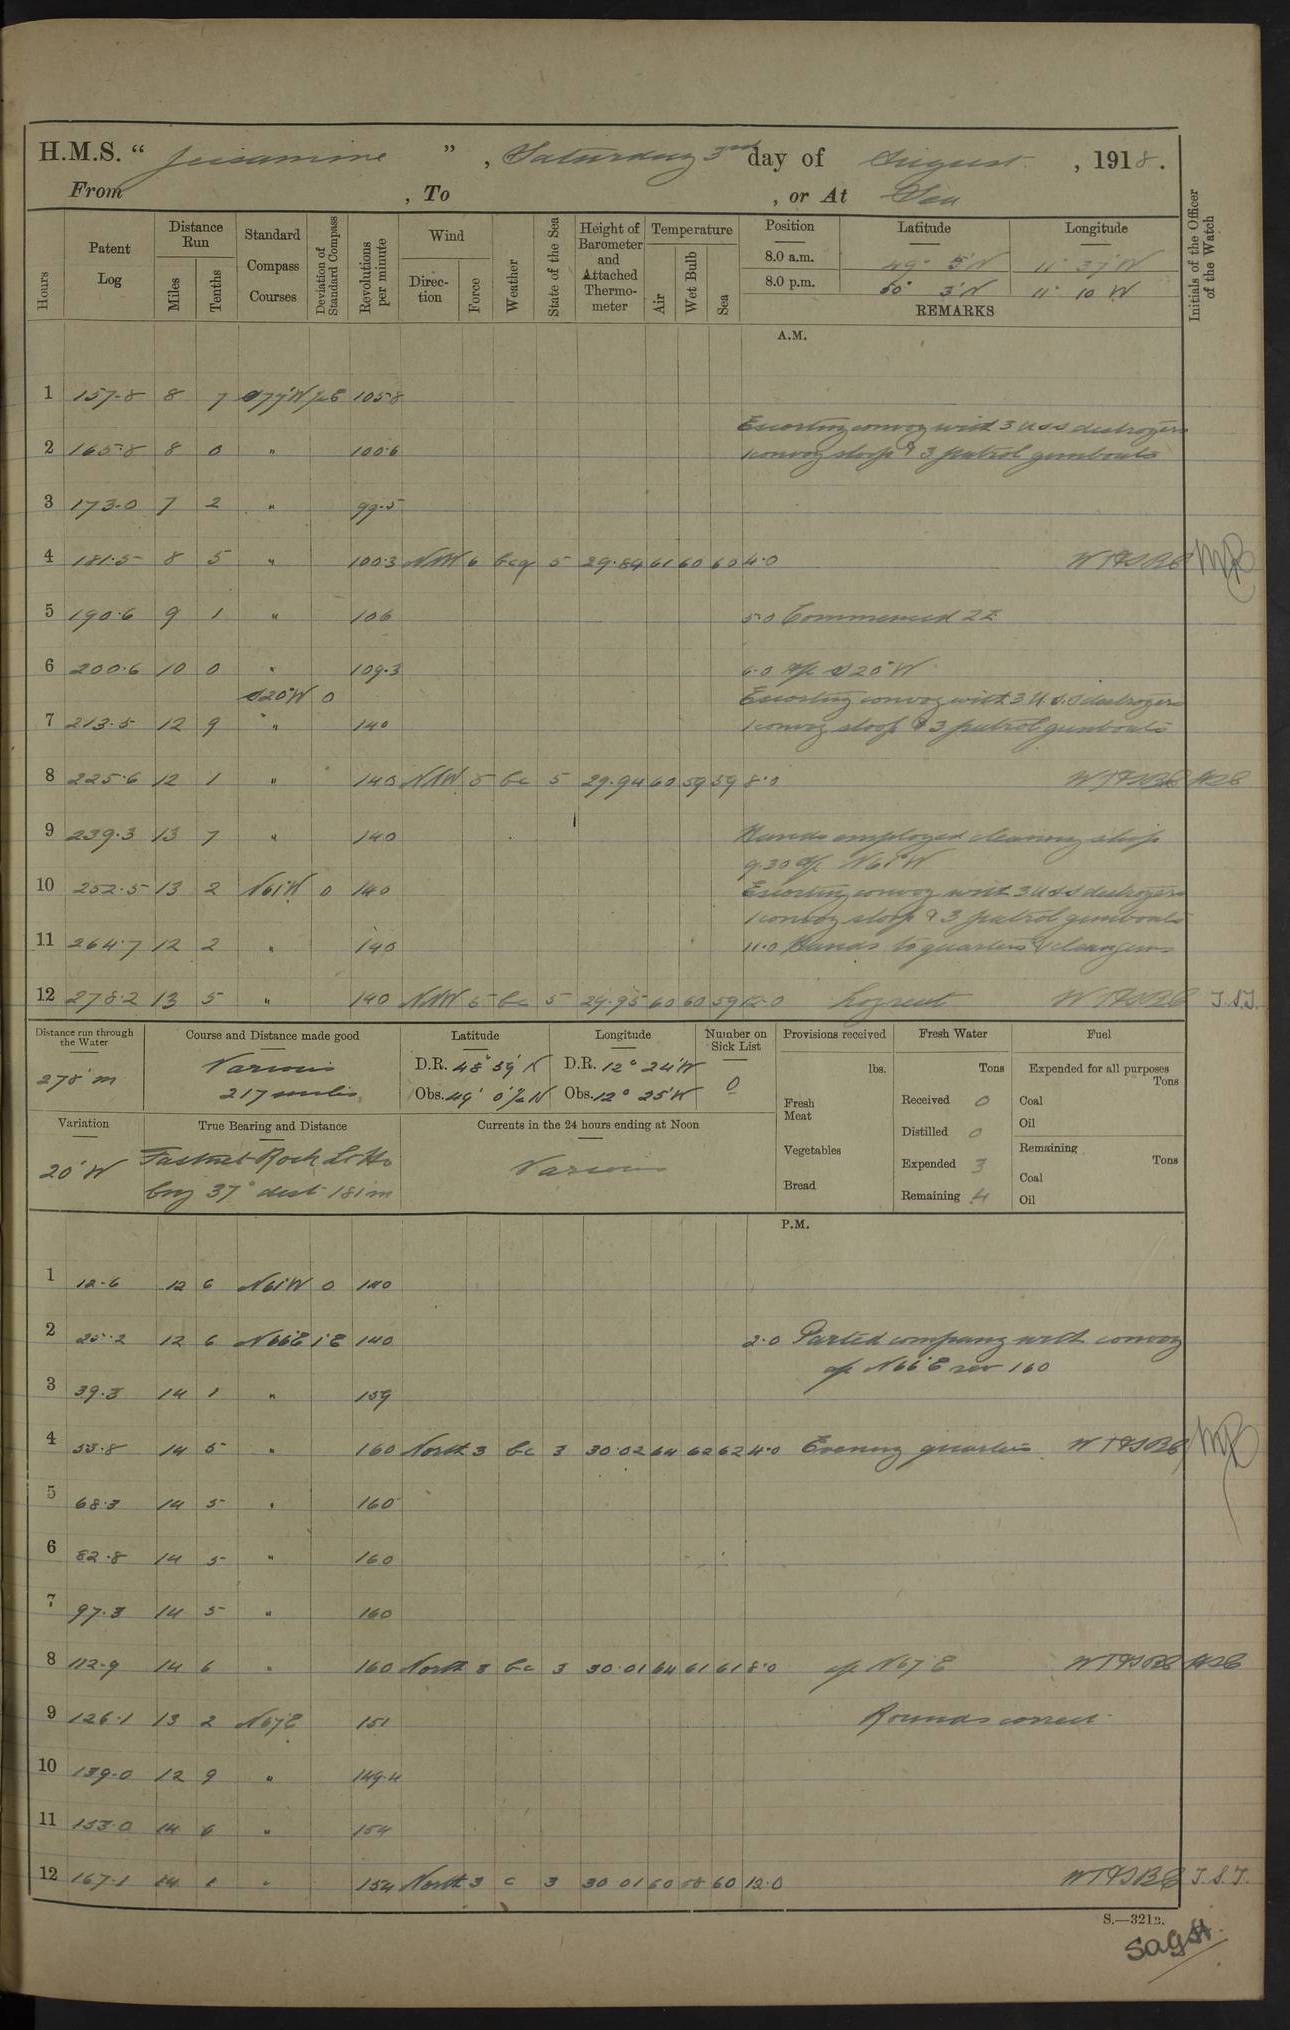 H.M.S. “ Jessamine ” , Saturday 3rd day of August , 1918.
From , To , or At Sea
Hours
Patent Log
Distance Run
Miles
Tenths
Standard Compass Courses
Deviation of Standard Compass
Revolutions per minute
Wind
Direction
Force
Weather
State of the Sea
Height of Barometer and Attached Thermometer
Temperature
Air
Wet Bulb
Sea
Position Latitude Longitude
8.0 a.m. 49° 5'N 11° 37'W
8.0 p.m. 50° 3'N 11° 10 W
REMARKS
Initials of the Officer of the Watch
A.M.
1 157.8 8 7 S77°W 105.8
Escorting convoy with 3 USS destroyers
2 165.8 8 0 " 100.6 1 convoy sloop & 3 patrol gunboats
3 173.0 7 2 " 99.5
4 181.5 8 5 " 100.3 NNW 6 bcq 5 29.84 61 60 60 4.0 WT&SBE
5 190.6 9 1 " 106 5.0 Commenced ZZ
6 200.6 10 0 " 109.3 6.0 a/c S20°W
S20°W 0 Escorting convoy with 3 U.S.S destroyers
7 213.5 12 9 " 140 1 convoy sloop & 3 patrol gunboats
8 225.6 12 1 " 140 NNW 5 bc 5 29.94 60 59 59 8.0 WT&SBE
9 239.3 13 7 " 140 Hands employed cleaning ship
9.30 a/c N61°W
10 252.5 13 2 N61°W 0 140 Escorting convoy with 3 USS destroyers
1 convoy sloop & 3 patrol gunboats
11 264.7 12 2 " 140 11.0 Hands to quarters & clean guns
12 278.2 13 5 " 140 NNW 5 bc 5 29.95 60 60 59 12.0 Log reset WT&SBE J.S.J.
Distance run through the Water
278 m
Course and Distance made good
Various
217 miles
Latitude
D.R. 48° 59' N
Obs. 49° 0½ N
Longitude
D.R. 12° 24'W
Obs. 12° 25'W
Number on Sick List
0
Provisions received
lbs.
Fresh Meat
Vegetables
Bread
Fresh Water
Tons
Received 0
Distilled 0
Expended 3
Remaining 4
Fuel
Expended for all purposes
Tons
Coal
Oil
Remaining
Tons
Coal
Oil
Variation
20° W
True Bearing and Distance
Fastnet Rock Lt Ho
brg 37° dist 181 m
Currents in the 24 hours ending at Noon
Various
P.M.
1 12.6 12 6 N61W 0 140
2 25.2 12 6 N66E 1E 140 2.0 Parted company with convoy
a/c N66°E rev 160
3 39.3 14 1 " 159
4 53.8 14 5 " 160 North 3 bc 3 30.02 64 62 62 4.0 Evening quarters WT&SBE
5 68.3 14 5 " 160
6 82.8 14 5 " 160
7 97.3 14 5 " 160
8 112.9 14 6 " 160 North 3 bc 3 30.01 64 61 61 8.0 a/c N67°E WT&SBE
9 126.1 13 2 N67E 151 Rounds correct
10 139.0 12 9 " 149.4
11 153.0 14 6 " 154
12 167.1 14 1 " 154 North 3 c 3 30 01 60 60 12.0 WT&SBE J.S.J.
S.—321B.